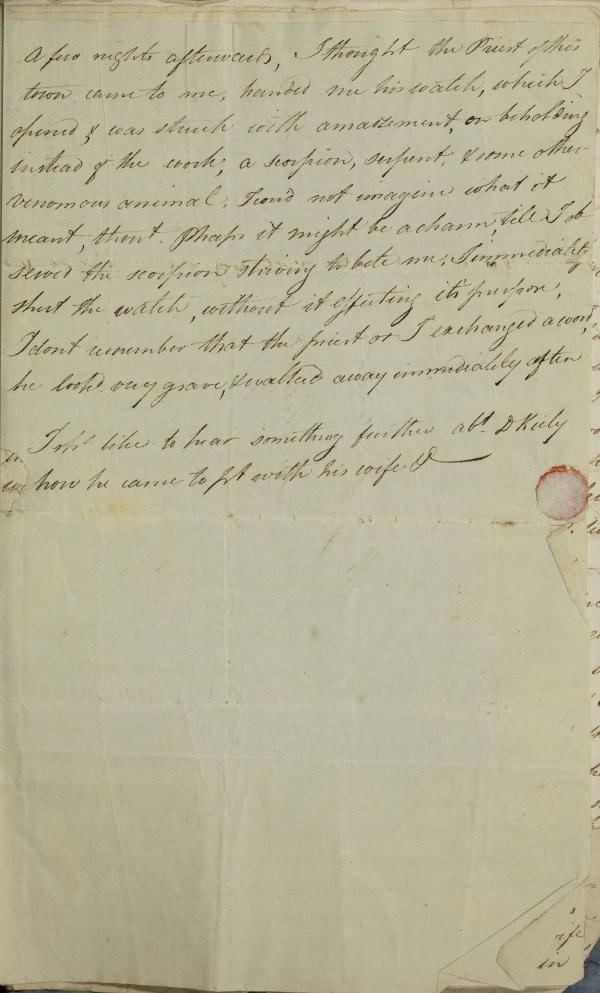 A few nights afterwards, I thought the Priest of this
town came to me, handed me his watch, which I
opened, & was struck with amazement, on beholding
instead of the work, a scorpion, serpent, & some other
venomous animal, I coud not imagine what it
meant, thout. Phaps it might be a charm, till I ob
served the scorpion striving to bite me, I immediately
shut the watch, without it effecting it's purpose,
I dont remember that the priest or I exchanged a word,
he look'd very grave, & walked away immediately after
I shd. like to hear something further abt. D Kiely
how he came to pt with his wife &
ife
in